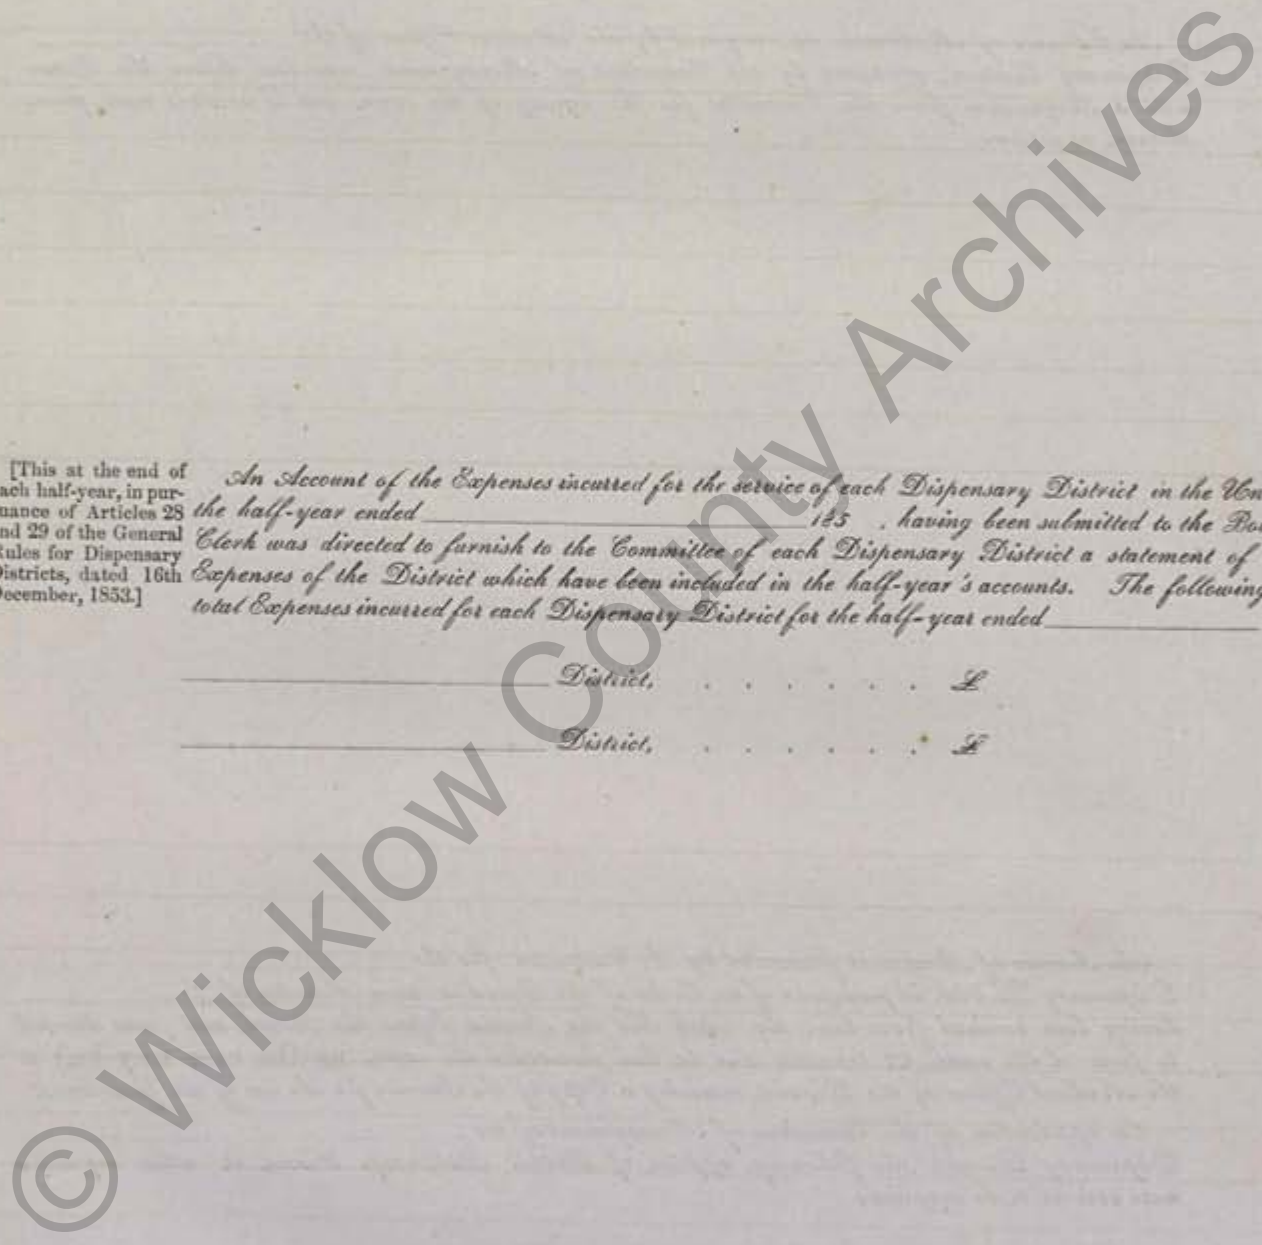 [This at the end of
ach half-year, in pur-
uance of Articles 28
nd 29 of the General
ules for Dispensary
istricts, dated 16th
ecember, 1853.]
An Account of the Expenses incurred for the service of each Dispensary District in the Un
the half-year ended 185 , having been submitted to the Bo
Clerk was directed to furnish to the Committee of each Dispensary District a statement of
Expenses of the District which have been included in the half-year's accounts. The following
total Expenses incurred for each Dispensary District for the half-year ended
District, . . . . . . £
District, . . . . . . £
© Wicklow County Archives